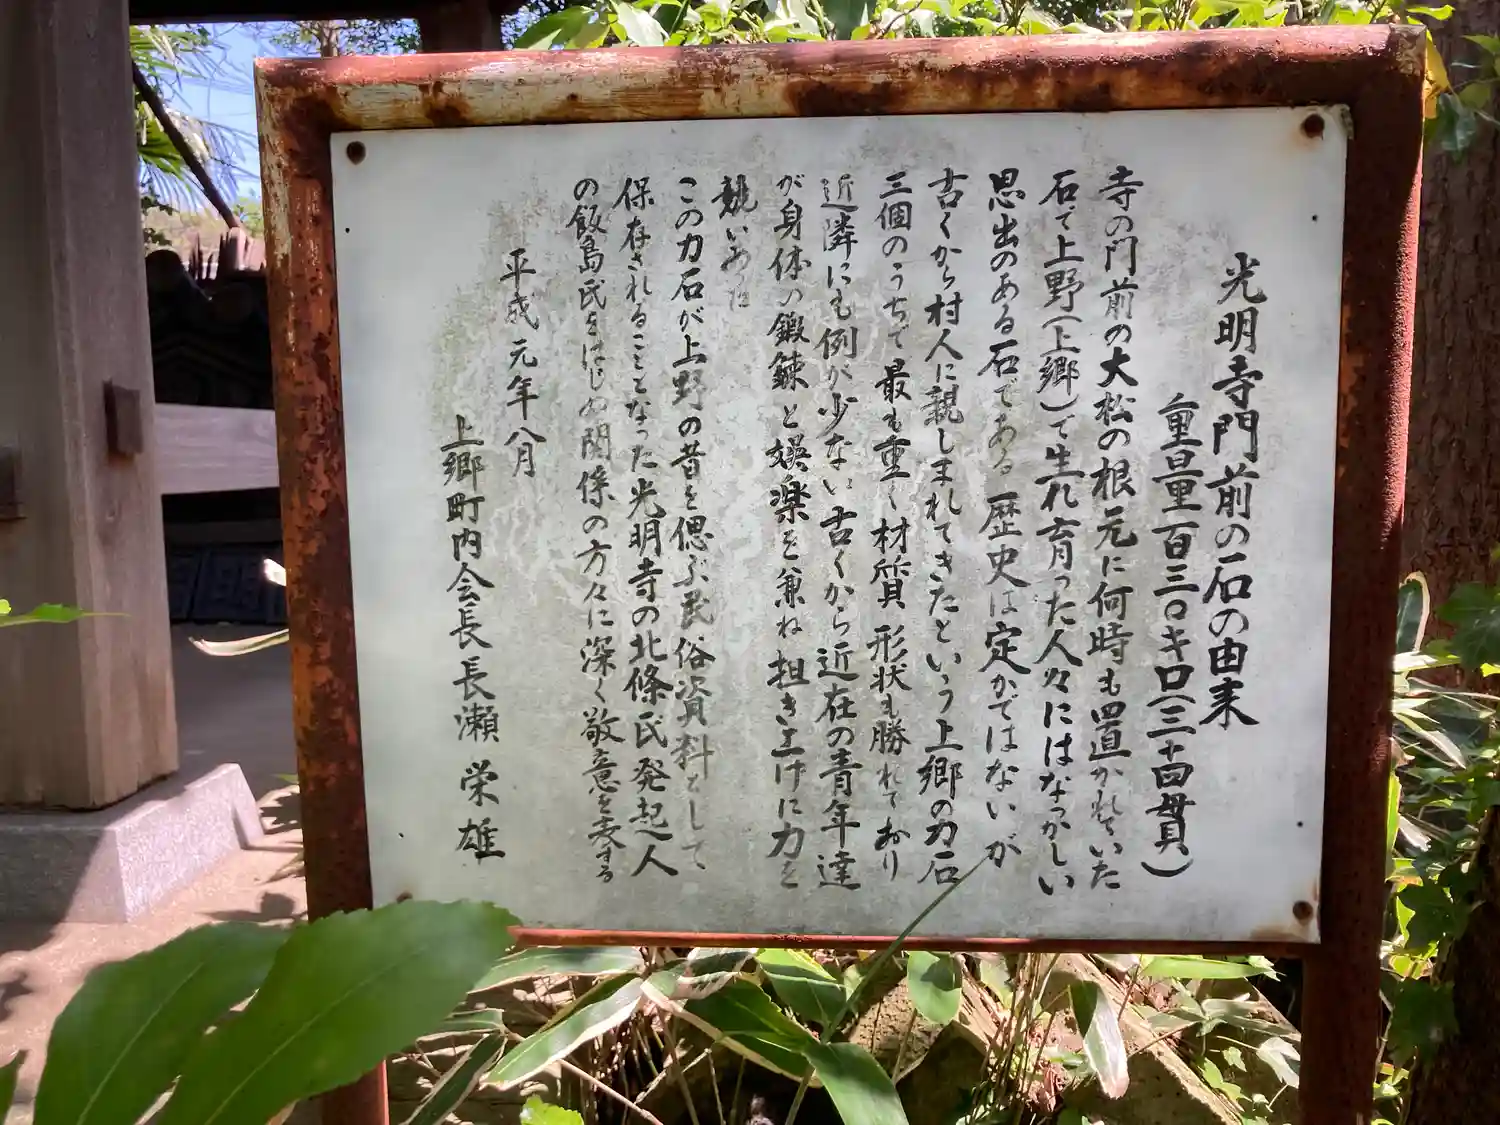 光明寺門前の石の由来
重量百三〇キロ(三十四貫)
寺の門前の大松の根元に何時も置かれていた
石で上野(上郷)で生れ育った人々にはなつかしい
思出のある石である 歴史は定かではないが
古くから村人に親しまれてきたという上郷の力石
三個のうちで最も重く材質 形状も勝れており
近隣にも例が少ない古くから近在の青年達
が身体の鍛錬と娯楽を兼ね担き上げに力を
競いあった
この力石が上野の昔を偲ぶ民俗資料として
保存されることとなった光明寺の北條氏発起人
の飯島氏をはじめ関係の方々に深く敬意を表する
平成元年八月
上郷町内会長長瀬栄雄